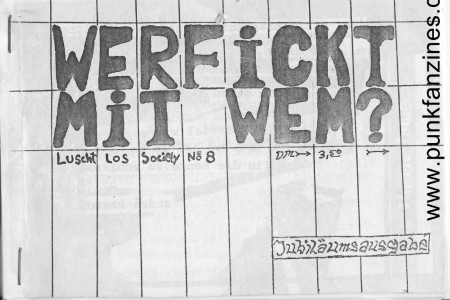 WERFiCKT
MiT WEM?
Luscht Los Society No 8 DM 3,50
Jubiläumsausgabe
www.punkfanzines.c